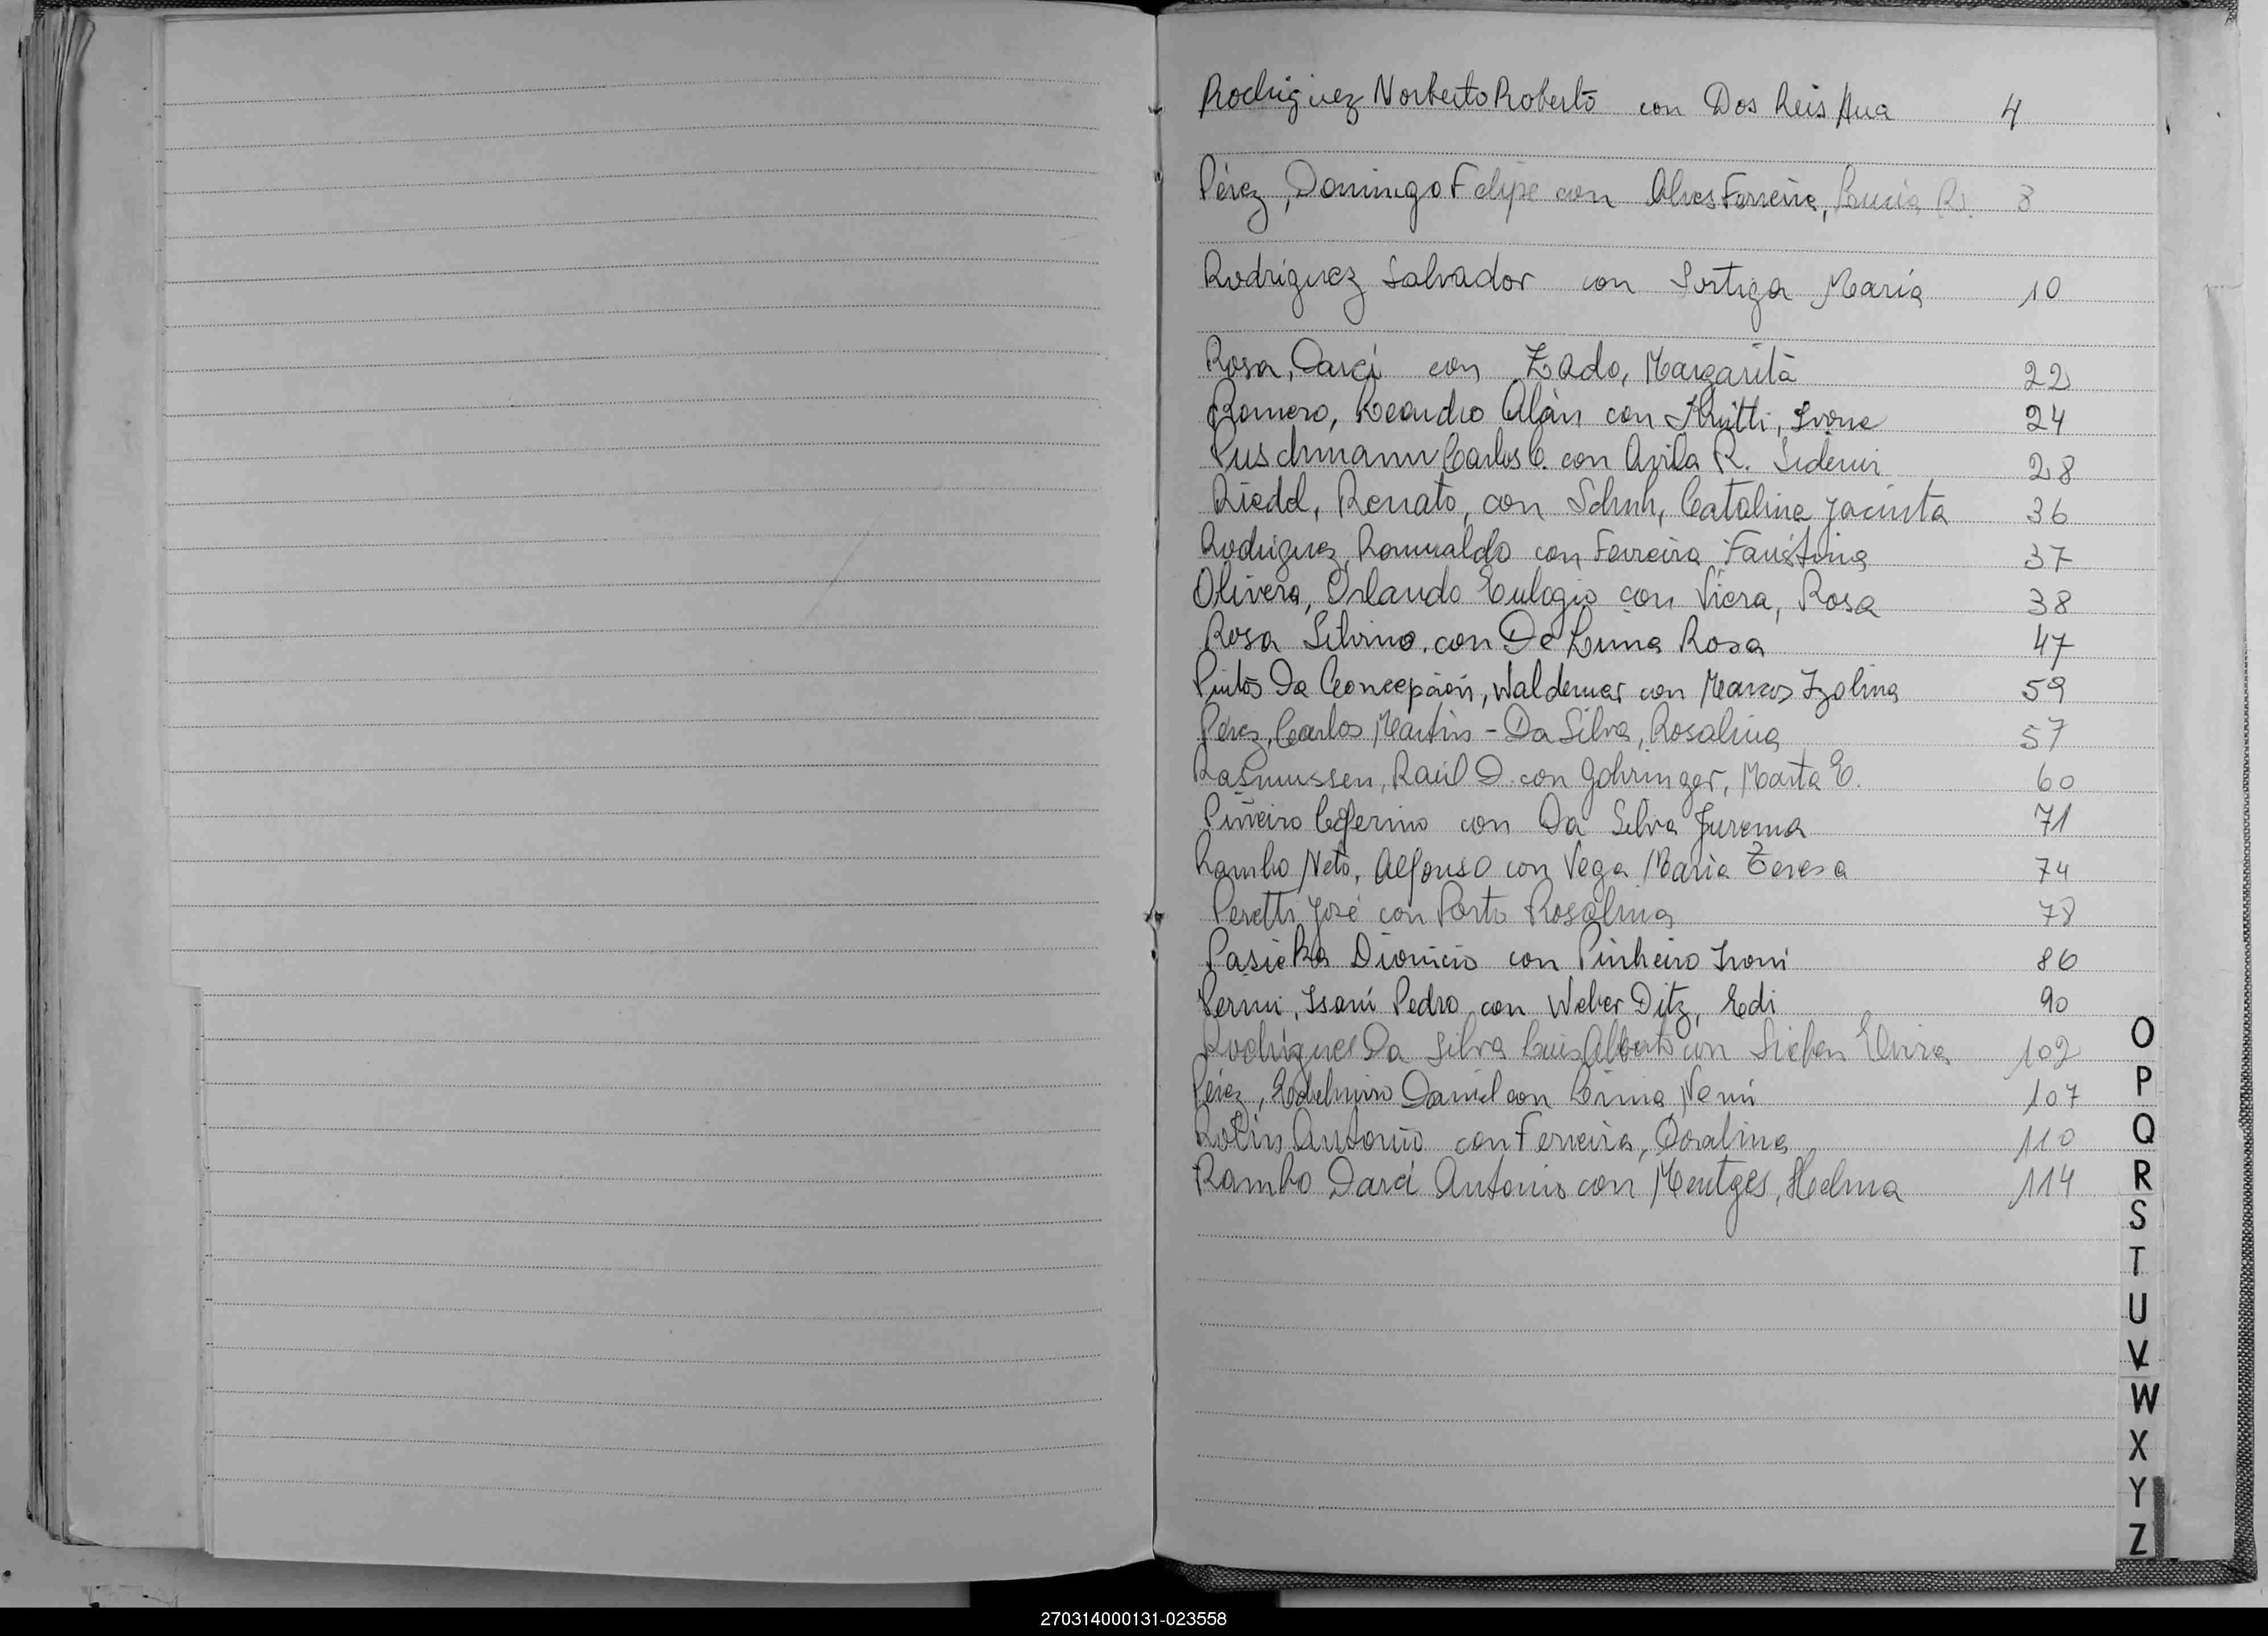 Rodriguez Norberto Roberto con Dos Reis Ana 4
Pérez, Domingo Felipe con Alves Ferreira, R. 8
Rodriguez Salvador con Sortiga María 10
Rosa, Darci con Zado, Margarita 22
Romero, Leandro Alán con Ivone 24
Puschmann Carlos C. con Avila R. 28
Riedel, Renato, con Schuh, Catalina Jacinta 36
Rodriguez, Romualdo con Ferreira Faustina 37
Olivera, Orlando Eulogio con Viera, Rosa 38
Rosa Silvino con De Lima Rosa 47
Pintos Da Concepción, Waldemar con Marcos Izolina 59
Pérez, Carlos Martins - Da Silva, Rosalina 57
Rasmussen, Raúl D. con Gohringer, Marta E. 60
Piñeiro Ceferino con Da Silva Jurema 71
Rambo Neto, Alfonso con Vega María Teresa 74
Peretti José con Porto Rosalina 78
Pasieka Dionicio con Pinheiro Ironi 86
Isani Pedro con Weber Ditz, Edi 90
Rodriguez Da Silva Luis Alberto con Sieben Elvira 102
Pérez, Edelmiro Daniel con Lima Nemi 107
Rolin Antonio con Ferreira, Doralina 110
Rambo Darci Antonio con Mentges, Helma 114
O
P
Q
R
S
T
U
V
W
X
Y
Z
270314000131-023558